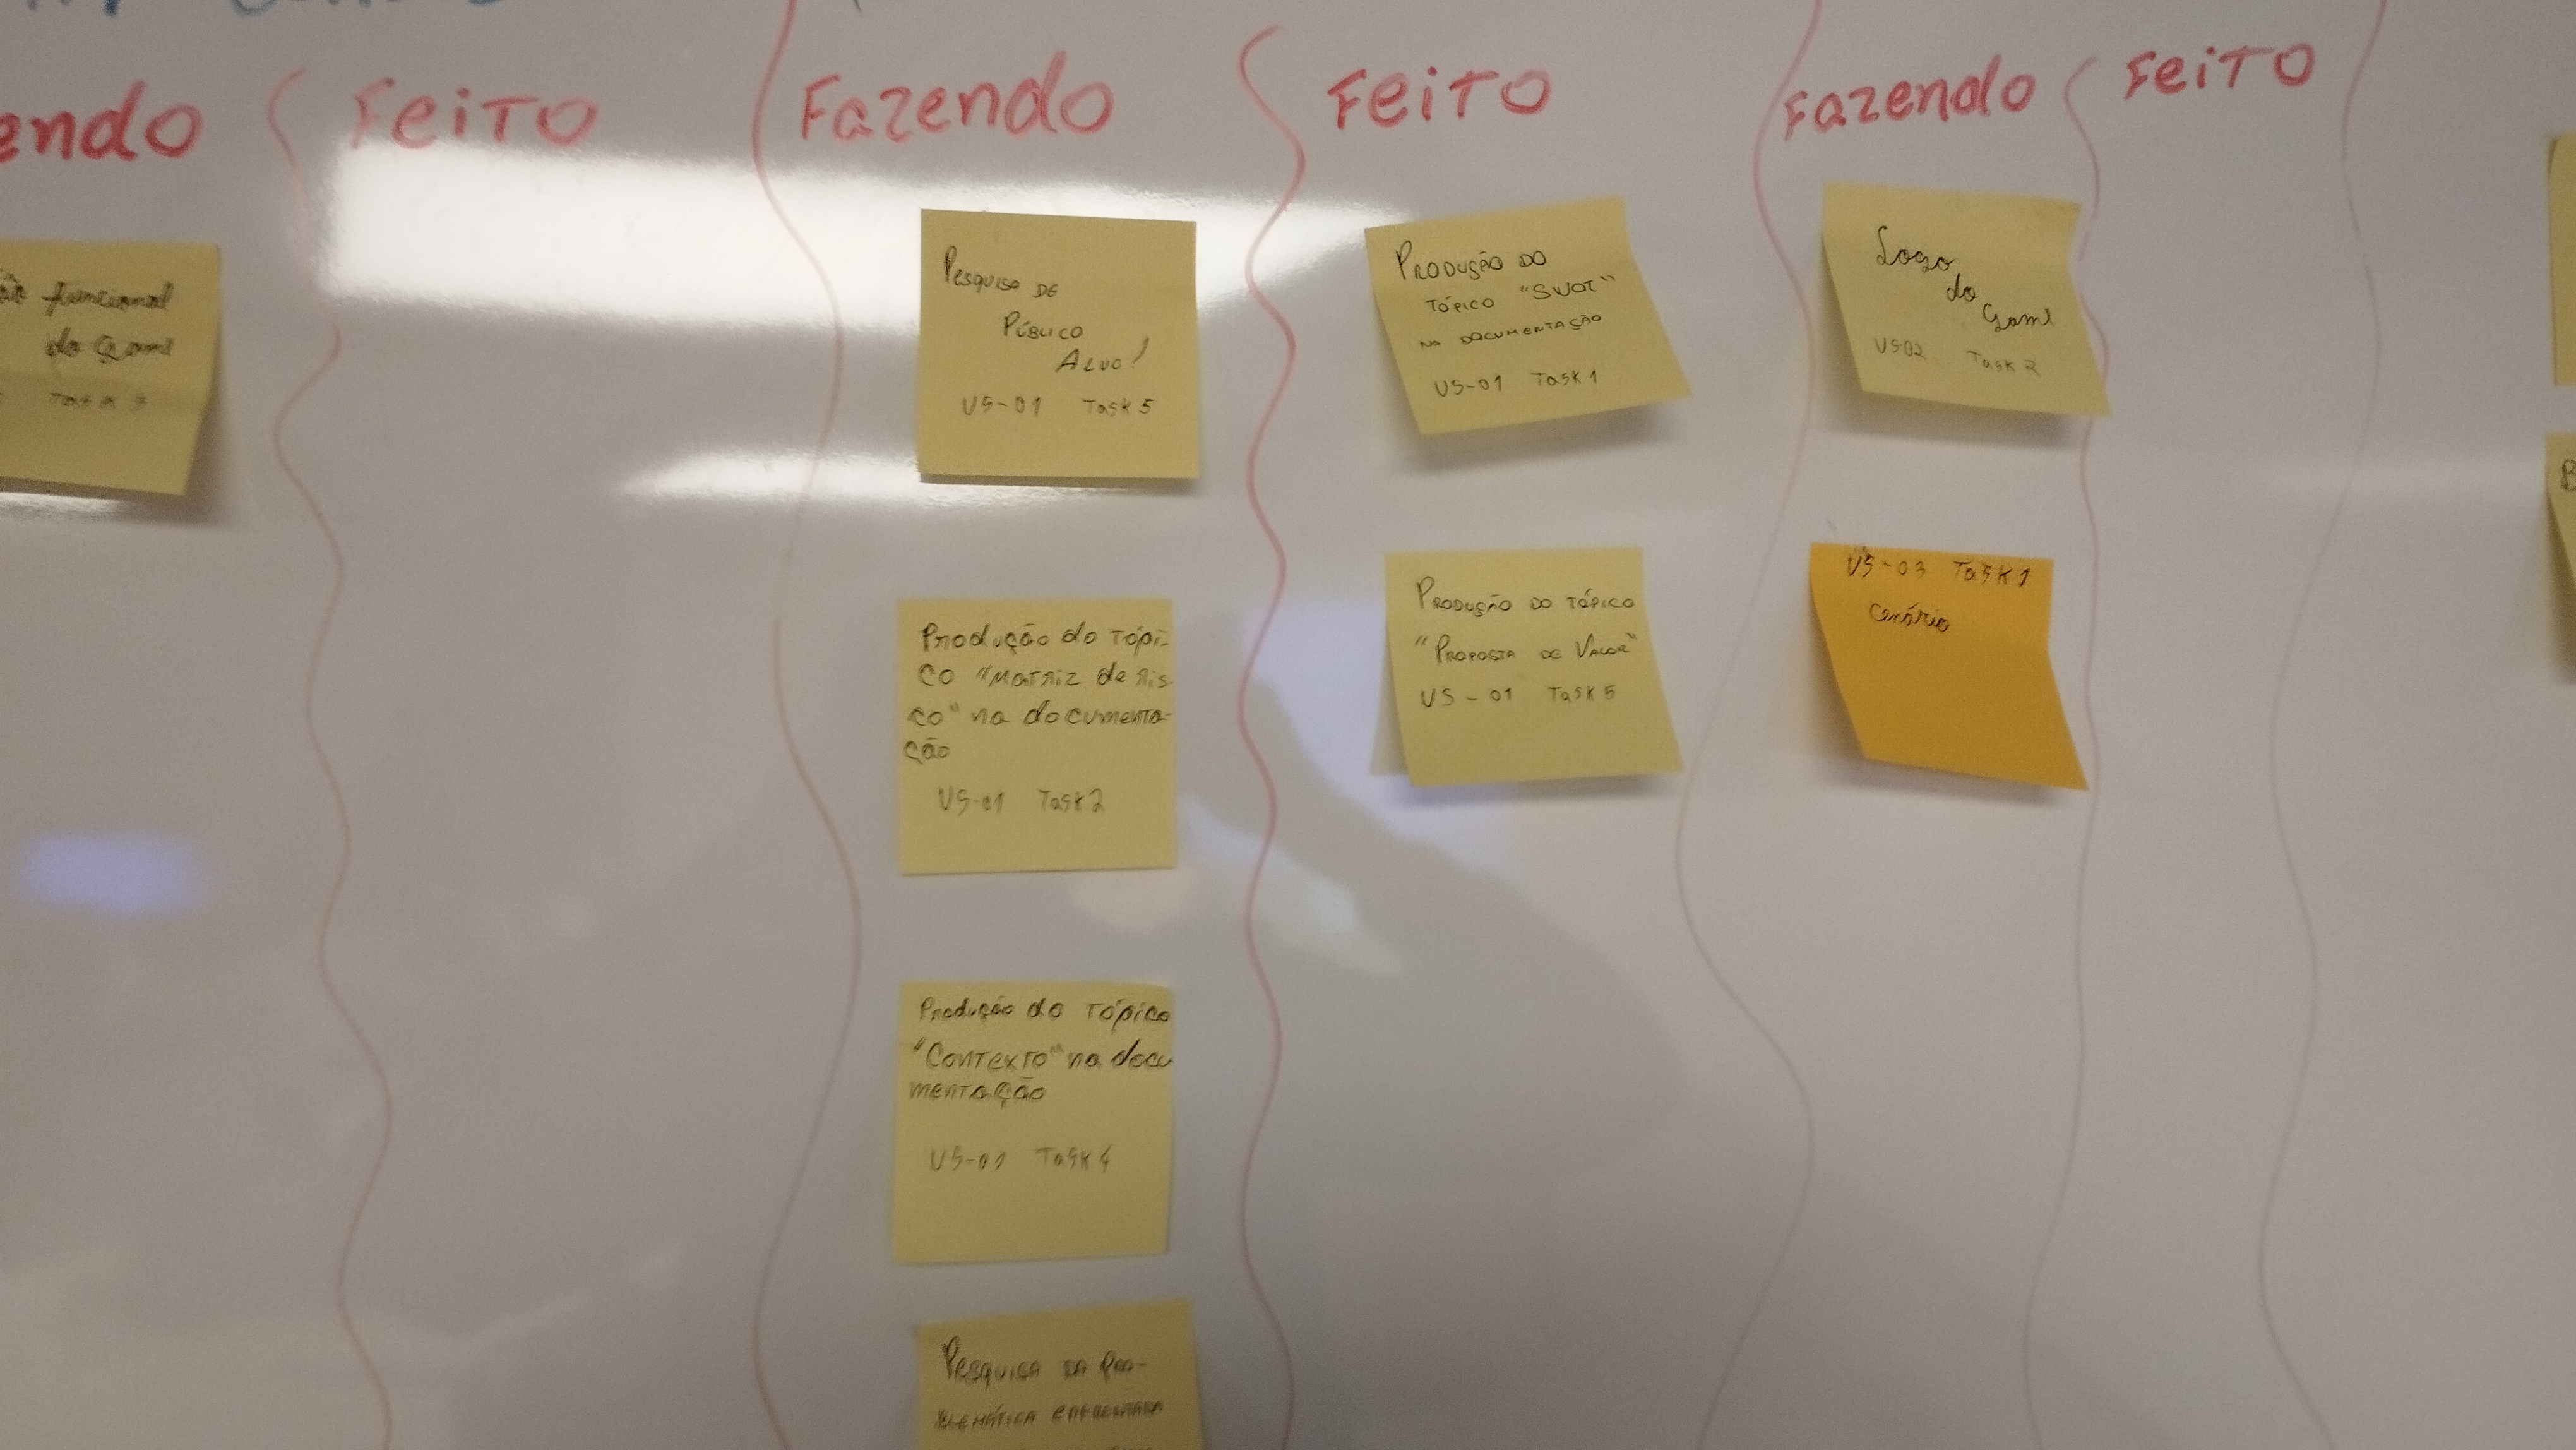 endo
Feito
Fazendo
Feito
Fazendo
Feito
funcional
do Game
Task 3
Pesquisa de
Público
Alvo!
US-01 Task 5
Produção do Tópi-
co "Matriz de ris-
co" na documenta-
ção
US-01 Task 2
Produção do Tópico
"Contexto" na docu
mentação
US-01 Task 4
Pesquisa da pro-
blemática enfrentada
Produção do
Tópico "SWOT"
na documentação
US-01 Task 1
Produção do tópico
"Proposta de Valor"
US-01 Task 5
Logo
do
Game
US02 Task 2
US-03 Task 1
Cenário
B